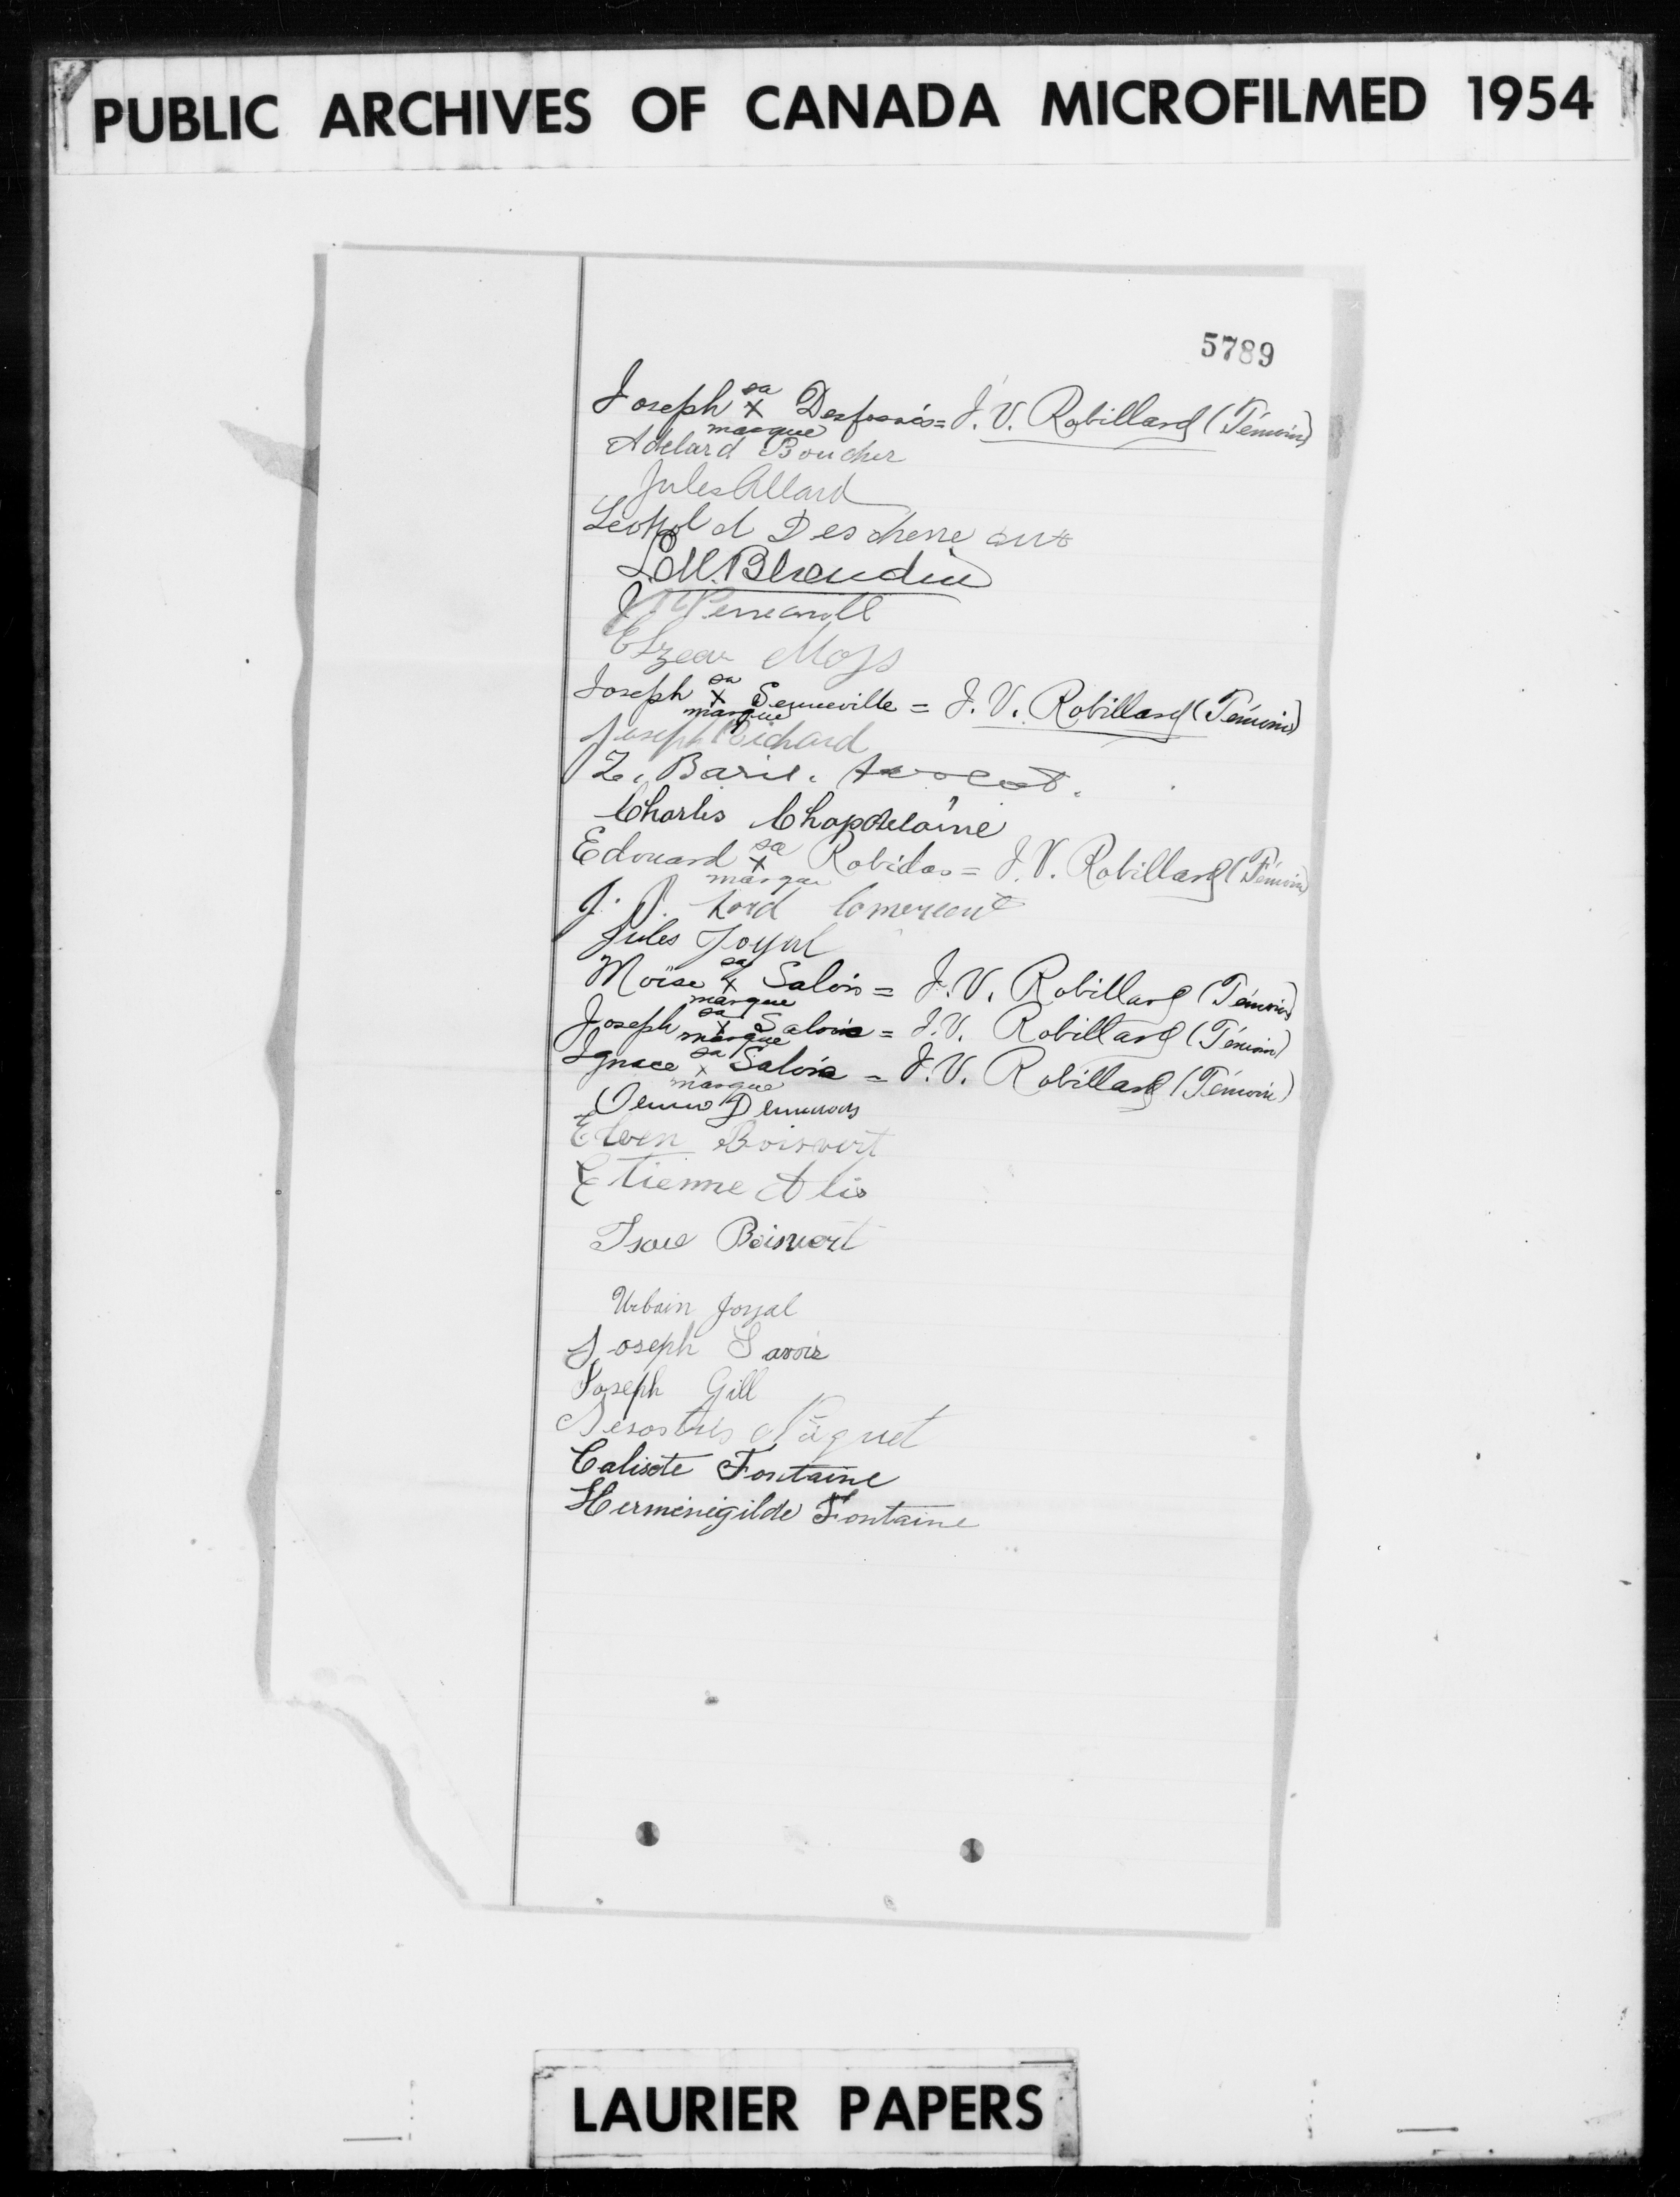 PUBLIC ARCHIVES OF CANADA MICROFILMED 1954
5789
Joseph sa x marque Desfossés = J. V. Robillard (Témoin)
Adelard Boucher
Jules Allard
Leopold Deschene
Blondin
Perreault
Elzear Moss
Joseph sa x marque Senneville = J. V. Robillard (Témoin)
Joseph Richard
Z. Baril. Avocat.
Charles Chapdelaine
Edouard sa x marque Robidas = J. V. Robillard (Témoin)
J. Lord Comercant
Jules Joyal
Moïse sa x marque Salois = J. V. Robillard (Témoin)
Joseph sa x marque Salois = J. V. Robillard (Témoin)
Ignace sa x marque Salois = J. V. Robillard (Témoin)
Boisvert
Etienne Alis
Boisvert
Urbain Joyal
Joseph Savoie
Joseph Gill
Sesostris Paquet
Calixte Fontaine
Herménégilde Fontaine
LAURIER PAPERS